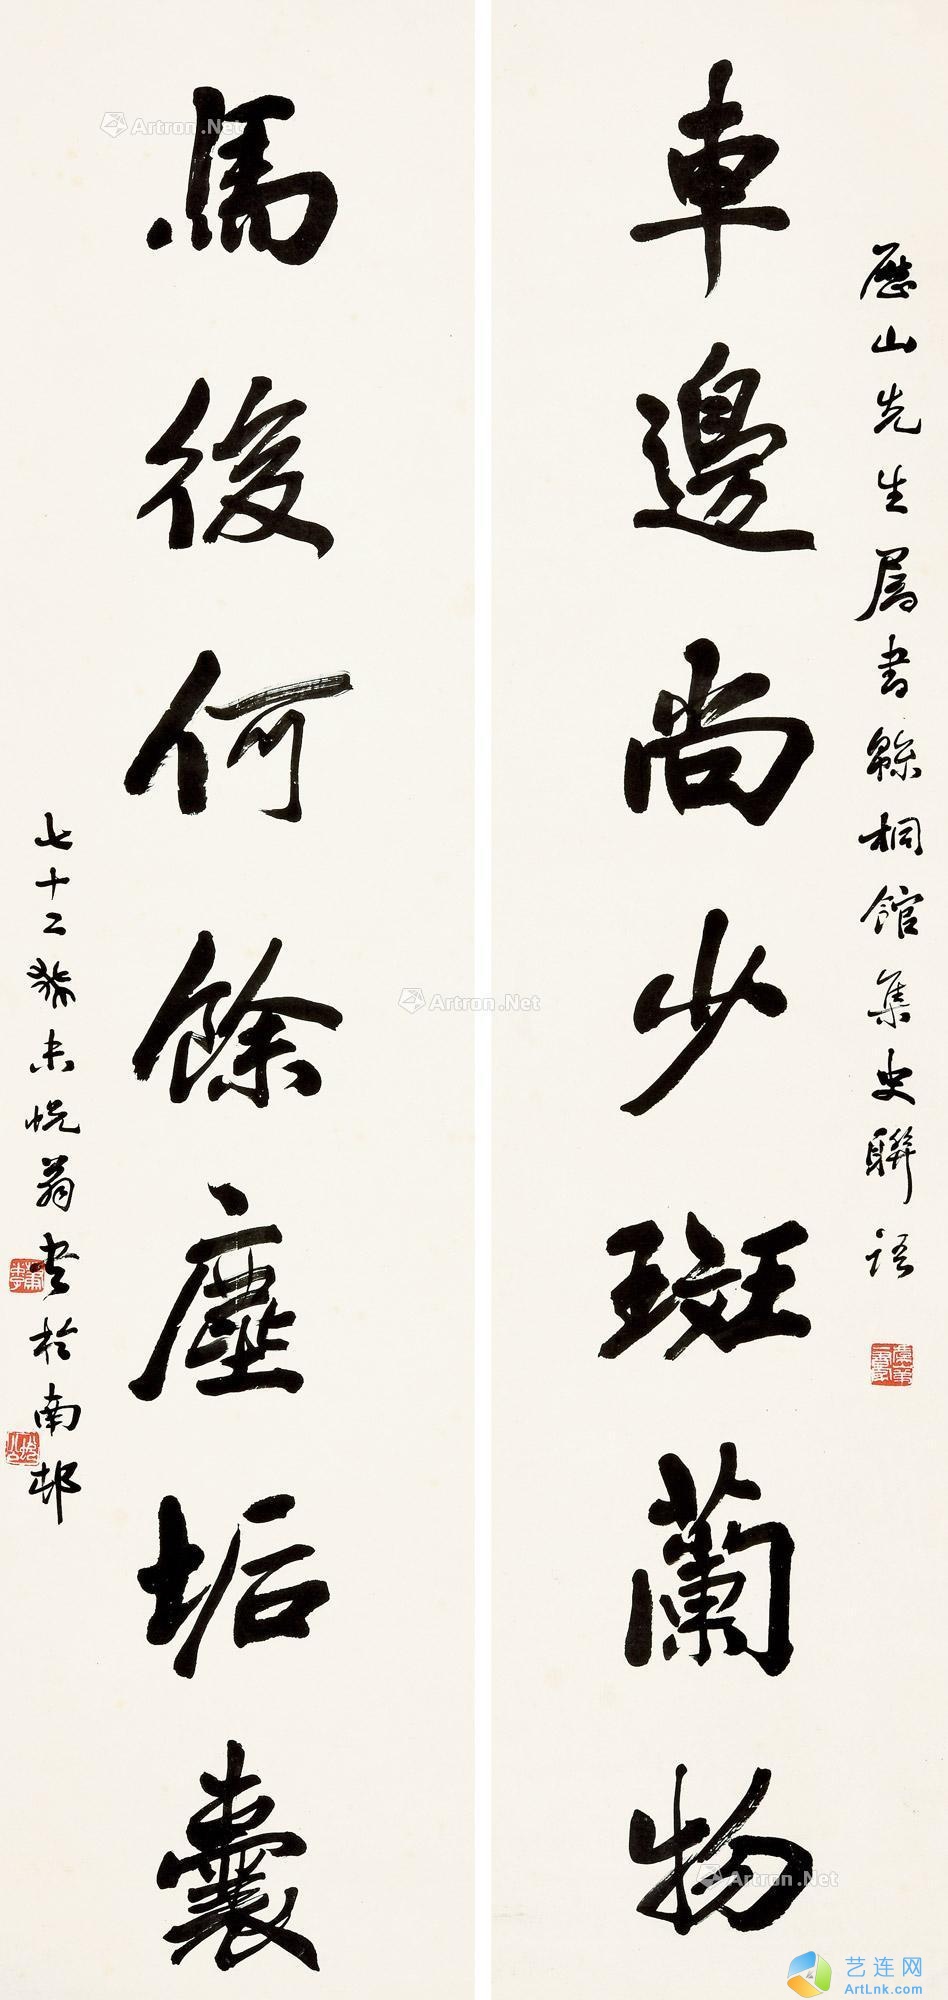 歷山先生屬書緜桐館集史聯語
車邊尚少斑蘭物
馬後何餘塵垢囊
七十二叟癸未帨翁書於南邨
Artron.Net
Artron.Net
Artron.Net
艺连网
ArtLnk.com